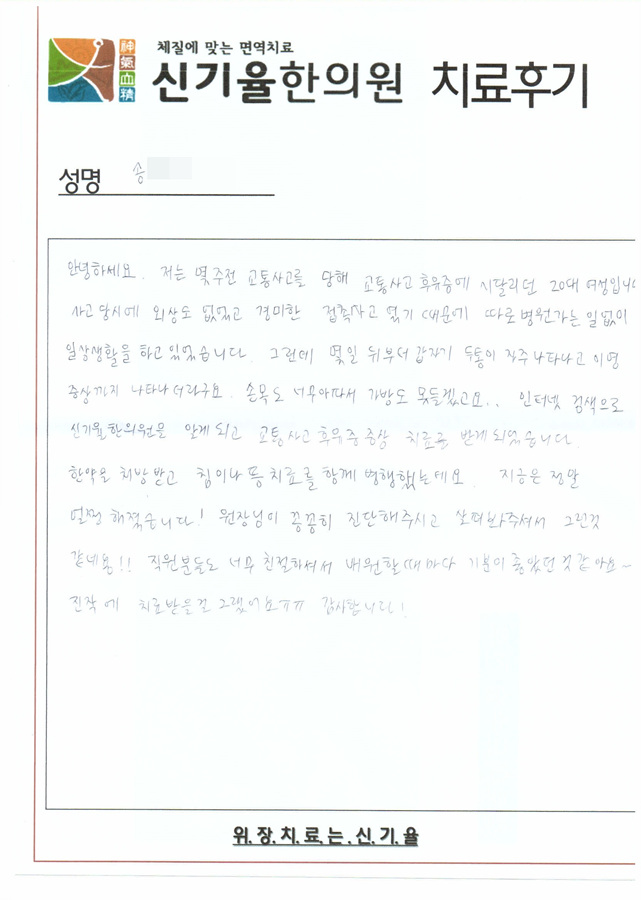 체질에 맞는 면역치료
神氣血精
신기율한의원 치료후기
성명 송
안녕하세요. 저는 몇주전 교통사고를 당해 교통사고 후유증에 시달리던 20대 여성입니
사고 당시에 외상도 없었고 경미한 접촉사고 였기 때문에 따로 병원가는 일없이
일상생활을 하고 있었습니다. 그런데 몇일 뒤부터 갑자기 두통이 자주 나타나고 이명
증상까지 나타나더라구요. 손목도 너무아파서 가방도 못들겠고요.. 인터넷 검색으로
신기율한의원을 알게되고 교통사고 후유증 증상 치료를 받게 되었습니다.
한약을 처방받고 침이나 뜸치료를 함께 병행했는데요. 지금은 정말
멀쩡해졌습니다! 원장님이 꼼꼼히 진단해주시고 살펴봐주셔서 그런것
같네용!! 직원분들도 너무 친절하셔서 내원할때마다 기분이 좋았던 것 같아요~
진작에 치료받을걸 그랬어요ㅠㅠ 감사합니다!
위.장.치.료.는.신.기.율